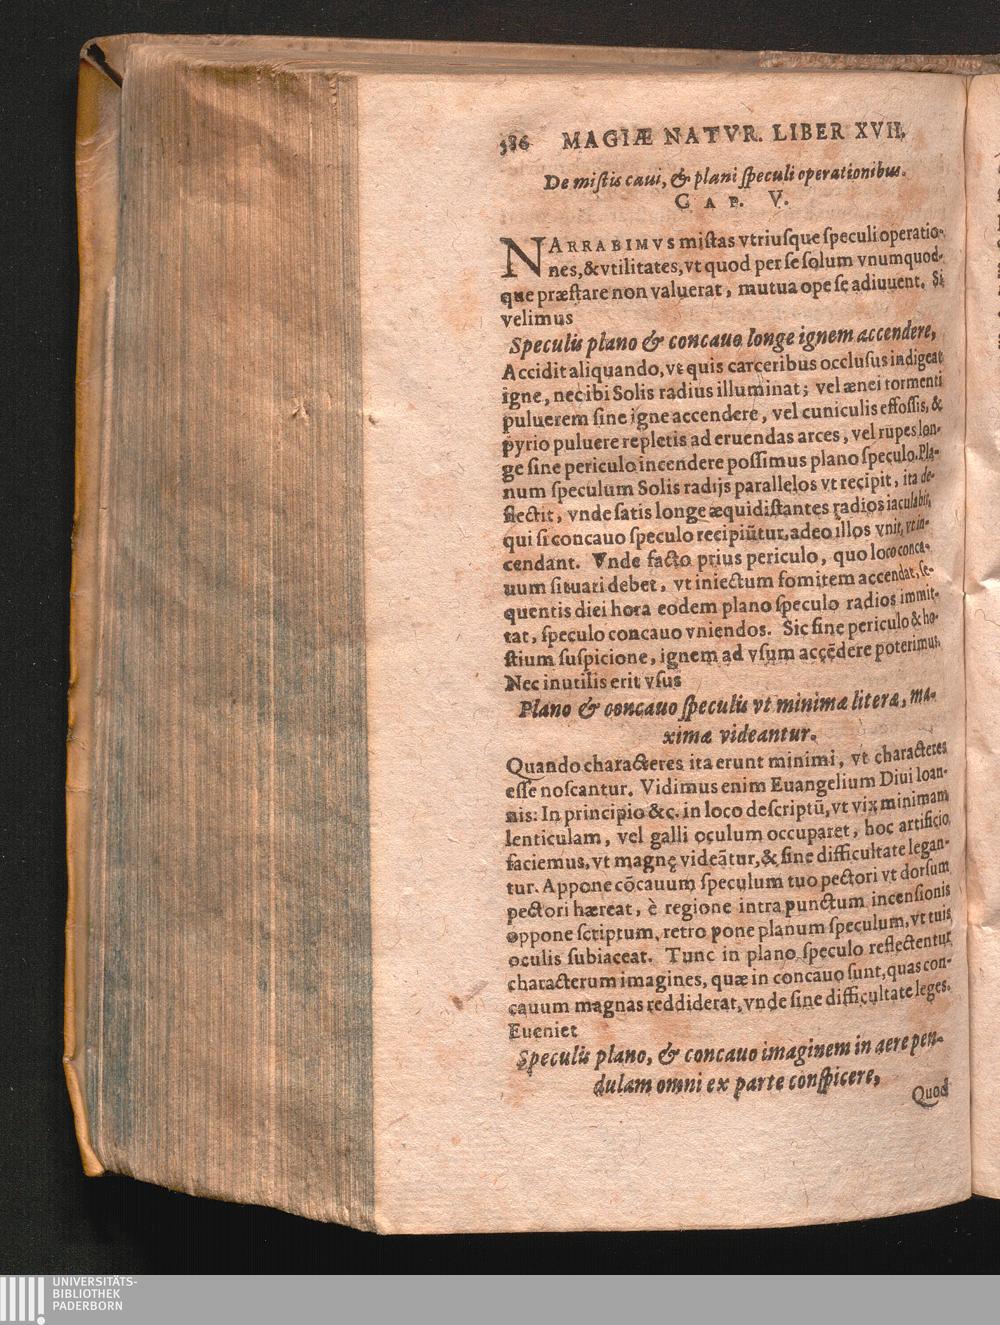 586 MAGIÆ NATVR. LIBER XVII.
De mistis caui, & plani speculi operationibus.
CAP. V.
NARRABIMVS mistas vtriusque speculi operatio-
nes, & vtilitates, vt quod per se solum vnumquod-
que præstare non valuerat, mutua ope se adiuuent. Si
velimus
Speculis plano & concauo longe ignem accendere,
Accidit aliquando, vt quis carceribus occlusus indigeat
igne, nec ibi Solis radius illuminat; vel ænei tormenti
puluerem sine igne accendere, vel cuniculis effossis, &
pyrio puluere repletis ad eruendas arces, vel rupes lon-
ge sine periculo incendere possimus plano speculo. Pla-
num speculum Solis radijs parallelos vt recipit, ita de-
flectit, vnde satis longe æquidistantes radios iaculabit,
qui si concauo speculo recipiũtur, adeo illos vnit, vt in-
cendant. Vnde facto prius periculo, quo loco conca-
uum situari debet, vt iniectum fomitem accendat, se-
quentis diei hora eodem plano speculo radios immit-
tat, speculo concauo vniendos. Sic sine periculo & ho-
stium suspicione, ignem ad vsum accẽdere poterimus.
Nec inutilis erit vsus
Plano & concauo speculis vt minimæ literæ, ma-
ximæ videantur.
Quando characteres ita erunt minimi, vt characteres
esse noscantur. Vidimus enim Euangelium Diui Ioan-
nis: In principio &c. in loco descriptũ, vt vix minimam
lenticulam, vel galli oculum occuparet, hoc artificio
faciemus, vt magnę videãtur, & sine difficultate legan-
tur. Appone cõcauum speculum tuo pectori vt dorsum
pectori hæreat, è regione intra punctum incensionis
oppone scriptum, retro pone planum speculum, vt tuis
oculis subiaceat. Tunc in plano speculo reflectentur
characterum imagines, quæ in concauo sunt, quas con-
cauum magnas reddiderat, vnde sine difficultate leges.
Eueniet
Speculis plano, & concauo imaginem in aere pen-
dulam omni ex parte conspicere,
Quod
UNIVERSITÄTS-
BIBLIOTHEK
PADERBORN